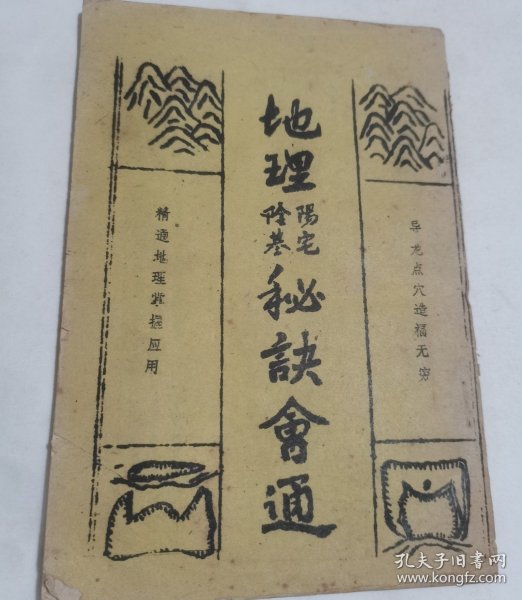 导龙点穴造福无穷
地理
陽宅
陰基
秘訣會通
精通地理掌握应用
孔夫子旧书网
www.kongfz.com